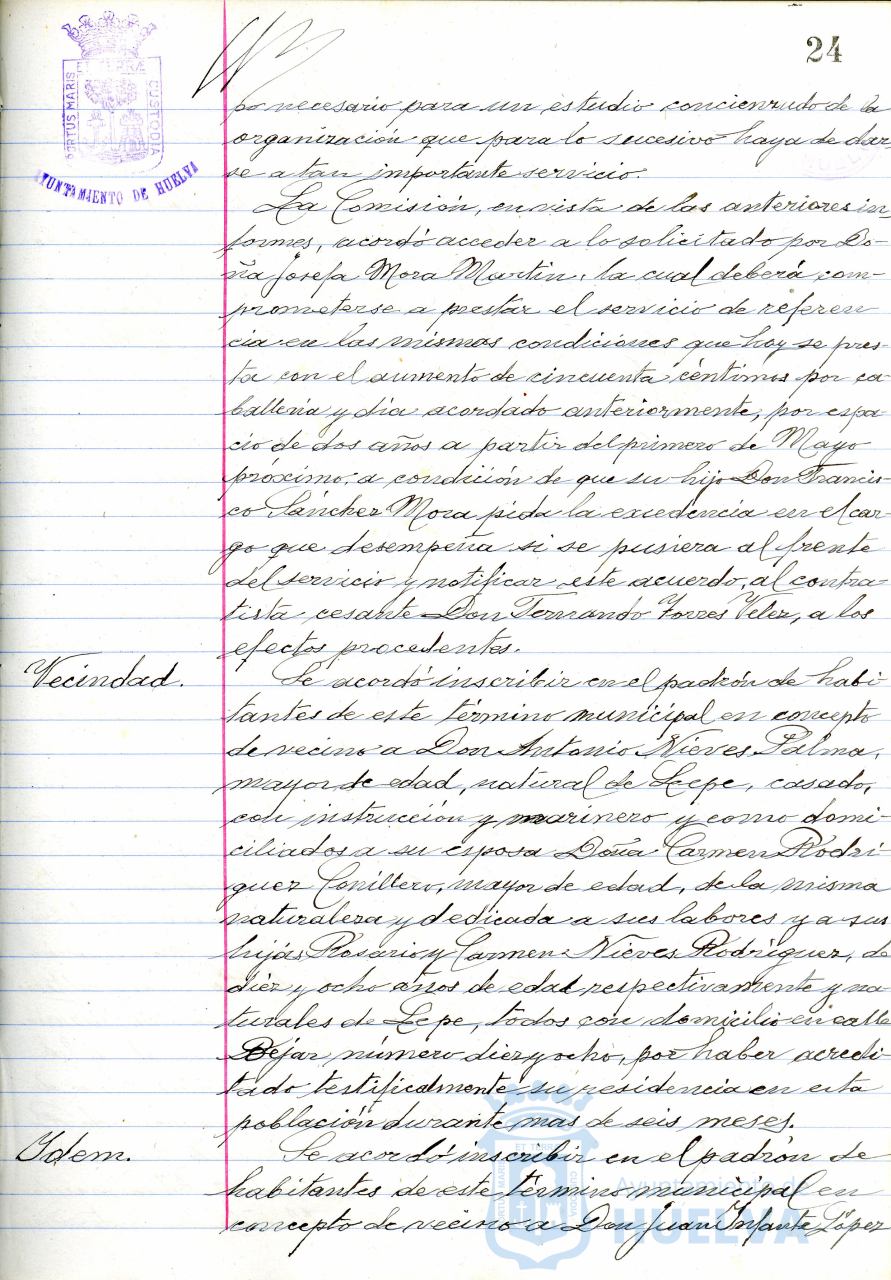 24
PORTUS MARIS ET TERRÆ CUSTODIA
AYUNTAMIENTO DE HUELVA
po necesario para un estudio concienzudo de la
organización que para lo sucesivo haya de dar-
se a tan importante servicio.
La Comisión, en vista de las anteriores in-
formes, acordó acceder a lo solicitado por Do-
ña Josefa Mora Martin, la cual deberá com-
prometerse a prestar el servicio de referen
cia en las mismas condiciones que hoy se pres-
ta con el aumento de cincuenta céntimos por ca-
ballería y día acordado anteriormente, por espa-
cio de dos años a partir del primero de Mayo
próximo, a condición de que su hijo Don Francis-
co Sánchez Mora pida la excedencia en el car-
go que desempeña si se pusiera al frente
del servicio y notificar este acuerdo, al contra-
tista cesante Don Fernando Torres Velez, a los
efectos procedentes.
Vecindad.
Se acordó inscribir en el padrón de habi-
tantes de este término municipal en concepto
de vecino a Don Antonio Nieves Palma,
mayor de edad, natural de Lepe, casado,
con instrucción y marinero y como domi-
ciliados a su esposa Doña Carmen Rodrí-
guez Conillero, mayor de edad, de la misma
naturaleza y dedicada a sus labores y a sus
hijas Rosario y Carmen Nieves Rodríguez, de
diez y ocho años de edad respectivamente y na-
turales de Lepe, todos con domicilio en calle
Bejar número diez y ocho, por haber acredi-
tado testificalmente su residencia en esta
población durante mas de seis meses.
Ydem.
Se acordó inscribir en el padrón de
habitantes de este término municipal en
concepto de vecino a Don Juan Infante López
Ayuntamiento de
HUELVA